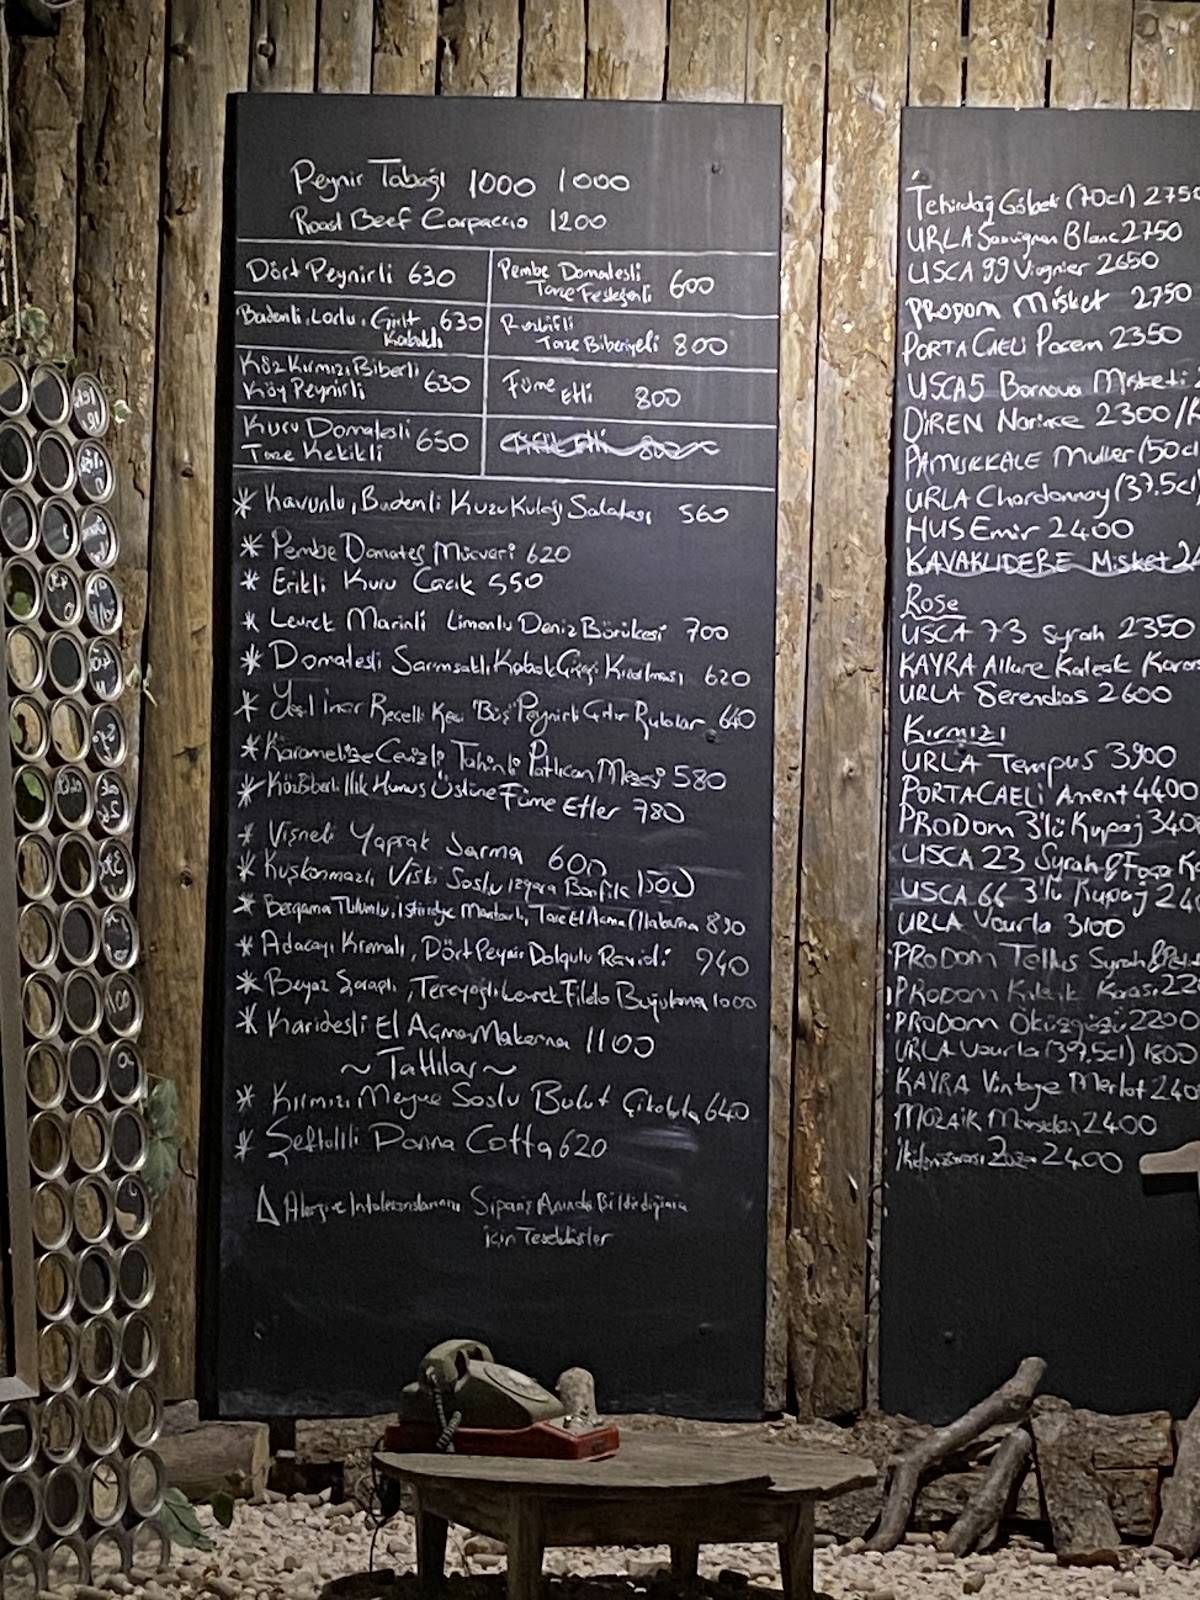 Peynir Tabağı 1000 1000
Roast Beef Carpaccio 1200
Dört Peynirli 630
Pembe Domatesli
Taze Fesleğenli 600
Bademli, Lorlu, Girit 630
Kabaklı
Rozbifli
Taze Biberiyeli 800
Köz Kırmızı Biberli
Köy Peynirli 630
Füme
Etli 800
Kuru Domatesli
Taze Kekikli 650
* Kavunlu, Bademli Kuzu Kulağı Salatası 560
* Pembe Domates Mücveri 620
* Erikli Kuru Cacık 550
* Levrek Marinli Limonlu Deniz Börülcesi 700
* Domatesli Sarımsaklı Kabak Çiçeği Kızartması 620
* Yeşil İncir Reçelli Keçi Peynirli Çıtır Rulolar 640
* Karamelize Cevizli Tahinli Patlıcan Mezesi 580
* Közbiberli Ilık Humus Üstüne Füme Etler 780
* Vişneli Yaprak Sarma 600
* Kuşkonmazlı, Viski Soslu Izgara Bonfile 1500
* Bergama Tulumlu, İstiridye Mantarlı, Taze El Açma Makarna 890
* Adaçayı Kremalı, Dört Peynir Dolgulu Ravioli 940
* Beyaz Şaraplı, Tereyağlı Levrek Fileto Buğulama 1000
* Karidesli El Açması Makarna 1100
~ Tatlılar ~
* Kırmızı Meyve Soslu Bulut Çikolata 640
* Şeftalili Panna Cotta 620
Alerji ve İntoleranslarınızı Sipariş Anında Bildirdiğiniz
için Teşekkürler
Tekirdağ Göbek (70cl) 2750
URLA Sauvignon Blanc 2750
USCA 99 Viognier 2650
PRODOM Misket 2750
PORTA CAELI Pacem 2350
USCA 5 Bornova Misketi
DİREN Narince 2300
PAMUKKALE Muller (50cl
URLA Chardonnay (37.5cl)
HUS Emir 2400
KAVAKLIDERE Misket
Rose
USCA 73 Syrah 2350
KAYRA Allure Kalecik
URLA Serendias 2600
Kırmızı
URLA Tempus 3900
PORTA CAELI Ament 4400
PRODOM 3'lü Kupaj 340
USCA 23 Syrah & Foça
USCA 66 3'lü Kupaj 240
URLA Vourla 3100
PRODOM Tellus Syrah &
PRODOM Kalecik Karası 22
PRODOM Öküzgözü 2200
URLA Vourla (37,5cl) 1800
KAYRA Vintage Merlot 240
MOZAİK Marselan 2400
2400